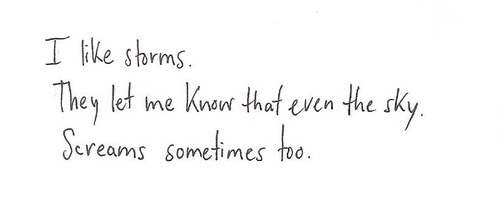 I like storms.
They let me know that even the sky.
Screams sometimes too.